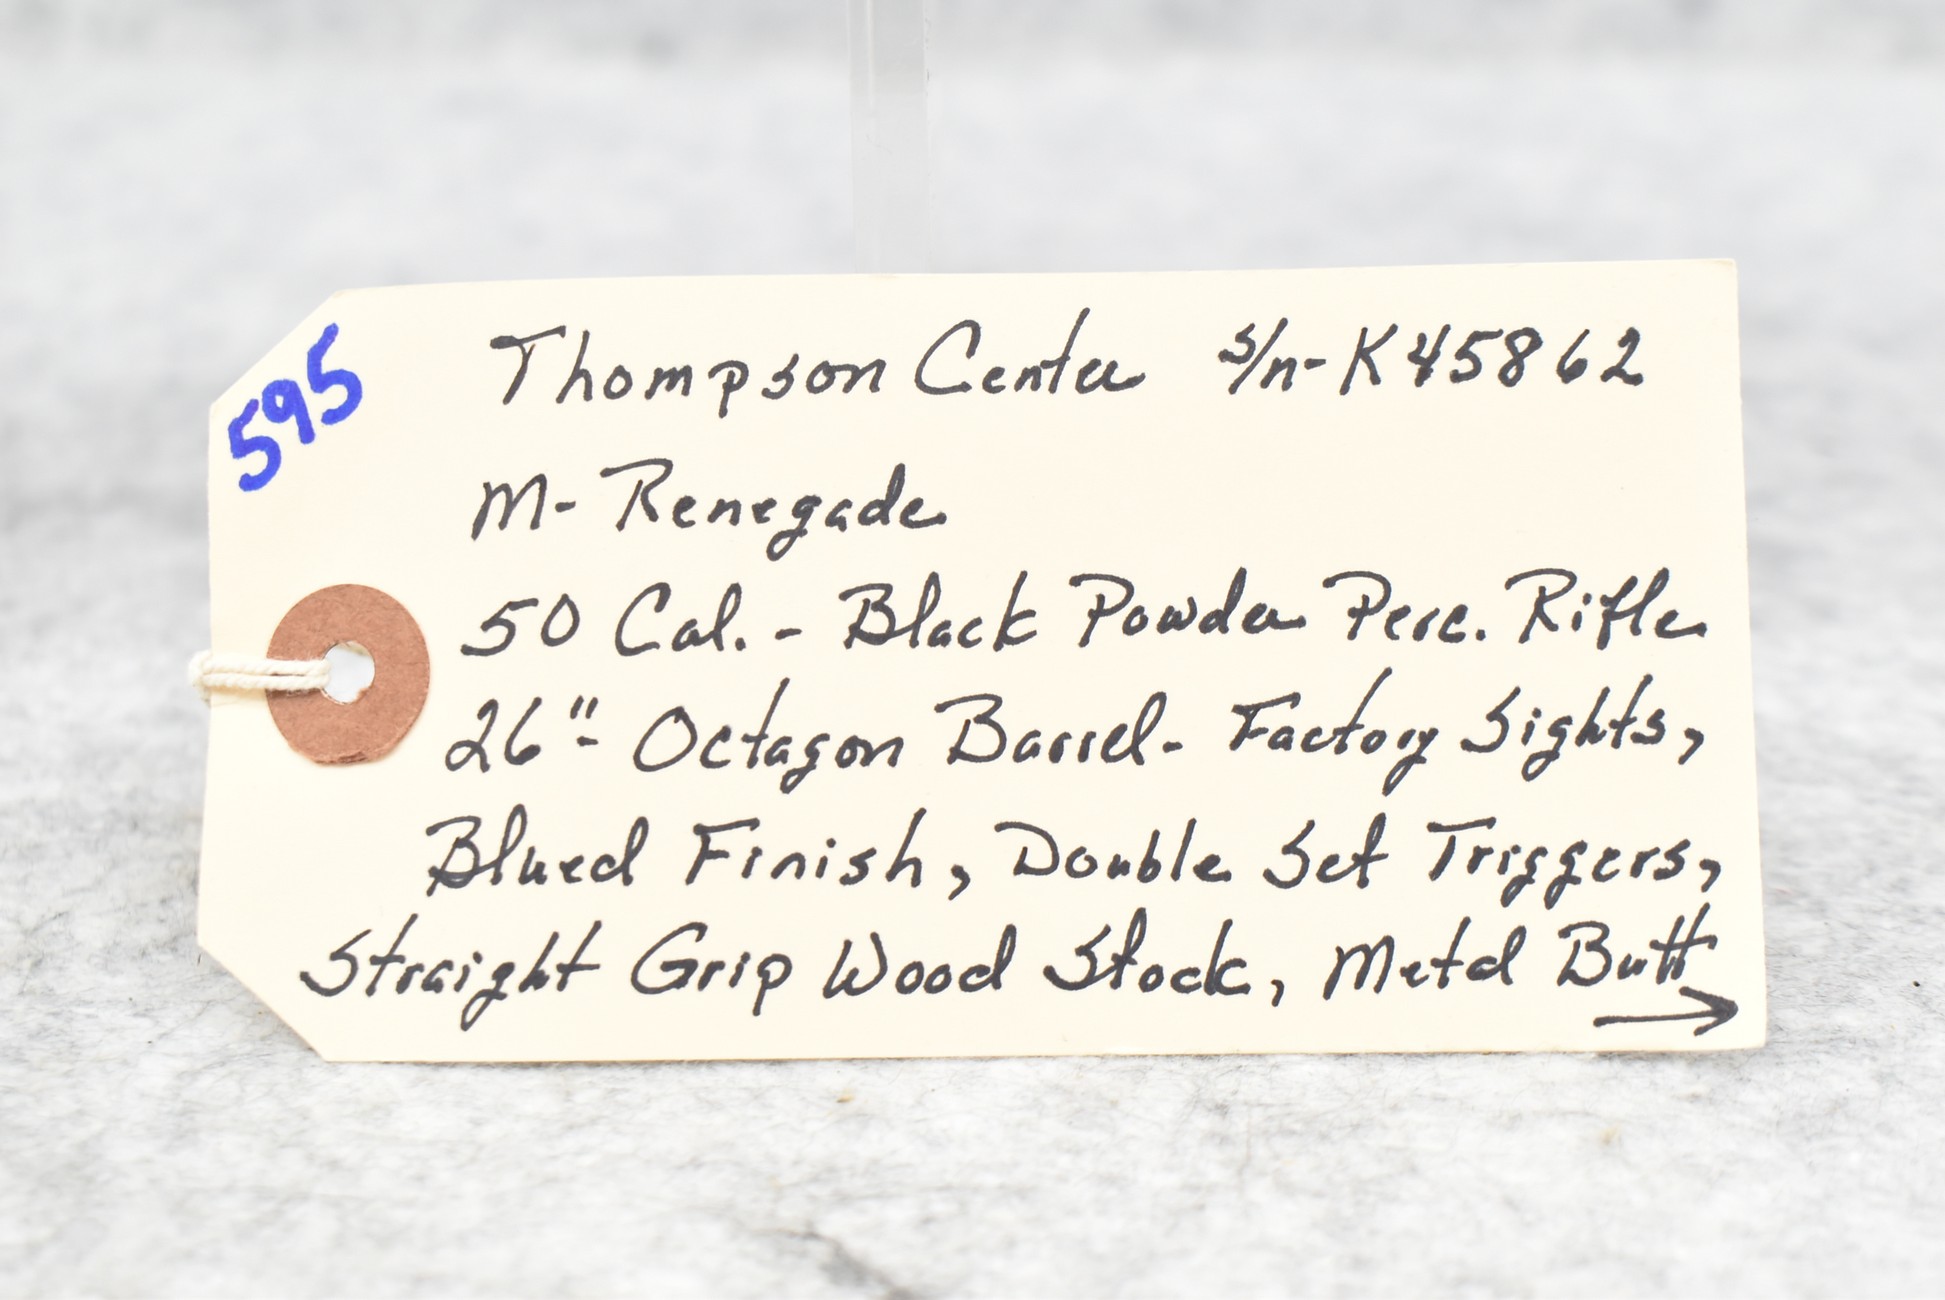 595
Thompson Center s/n-K45862
M- Renegade
50 Cal. - Black Powder Perc. Rifle
26"- Octagon Barrel- Factory Sights,
Blued Finish, Double Set Triggers,
Straight Grip Wood Stock, Metal Butt
→